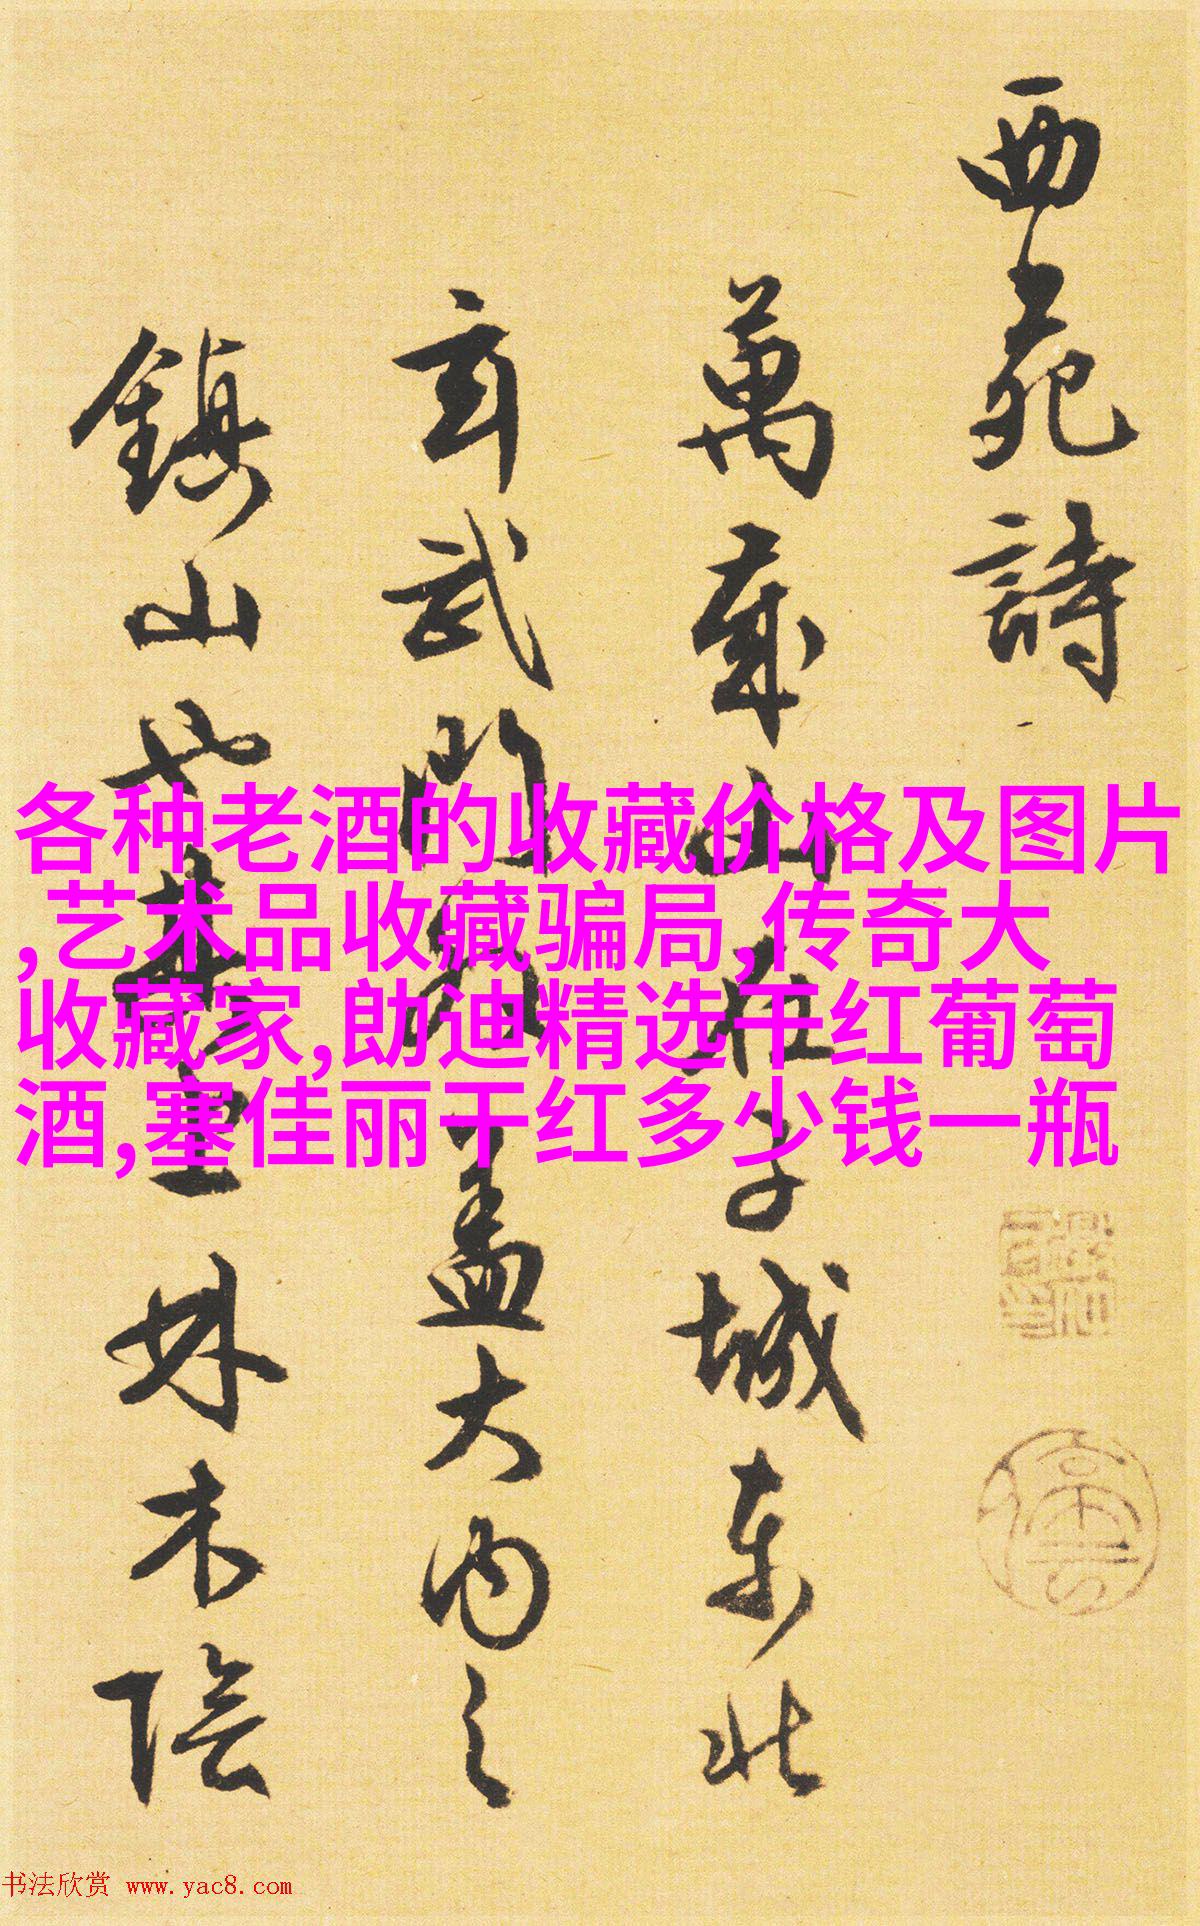 西苑詩
萬歲山在子城東北
玄武門外蓋大内之
鎮山也其上林木陰
各种老酒的收藏价格及图片
,艺术品收藏骗局,传奇大
收藏家,朗迪精选干红葡萄
酒,塞佳丽干红多少钱一瓶
书法欣赏 www.yac8.com